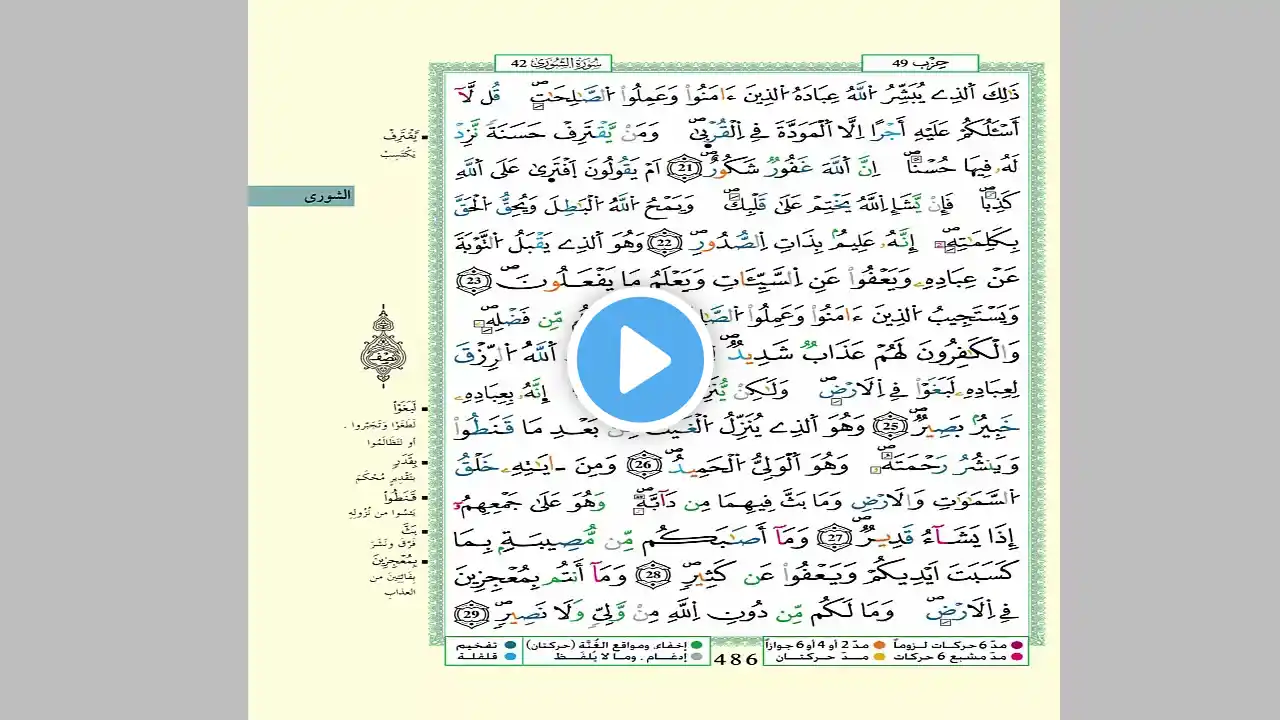 سُورَةُ الشُّورَى 42
حِزْب 49
ذَٰلِكَ اَلذِے يُبَشِّرُ اُللَّهُ عِبَادَهُ اُلذِينَ ءَامَنُواْ وَعَمِلُواْ اُلصَّٰلِحَٰتِۖ قُل لَّآ
أَسْـَٔلُكُمْ عَلَيْهِ أَجْرًا اِلَّا اَلْمَوَدَّةَ فِے اِلْقُرْب۪ىٰۖ وَمَنْ يَّقْتَرِفْ حَسَنَةً نَّزِدْ
لَهُۥ فِيهَا حُسْناًۖ اِنَّ اَللَّهَ غَفُورٌ شَكُورٌۖ 21 اَمْ يَقُولُونَ اَفْتَر۪ىٰ عَلَى اَللَّهِ
كَذِباًۖ فَإِنْ يَّشَإِ اِللَّهُ يَخْتِمْ عَلَىٰ قَلْبِكَۖ وَيَمْحُ اُللَّهُ اُلْبَٰطِلَ وَيُحِقُّ اُلْحَقَّ
بِكَلِمَٰتِهِۦٓۖ إِنَّهُۥ عَلِيمُۢ بِذَاتِ اِلصُّدُورِۖ 22 وَهُوَ اَلذِے يَقْبَلُ اُلتَّوْبَةَ
عَنْ عِبَادِهِۦ وَيَعْفُواْ عَنِ اِلسَّيِّـَٔاتِ وَيَعْلَمُ مَا يَفْعَلُونَۖ 23
وَيَسْتَجِيبُ اُلذِينَ ءَامَنُواْ وَعَمِلُواْ مِّن فَضْلِهِۦۖ
وَالْكَٰفِرُونَ لَهُمْ عَذَابٌ شَدِيدٌۖ اَللَّهُ اُلرِّزْقَ
لِعِبَادِهِۦ لَبَغَوْاْ فِے اِلَارْضِۖ وَلَٰكِنْ إِنَّهُۥ بِعِبَادِهِۦ
خَبِيرُۢ بَصِيرٌۖ 25 وَهُوَ اَلذِے يُنَزِّلُ بَعْدِ مَا قَنَطُواْ
وَيَنشُرُ رَحْمَتَهُۥۖ وَهُوَ اَلْوَلِيُّ اُلْحَمِيدُۖ 26 وَمِنَ اٰيَٰتِهِۦ خَلْقُ
اُلسَّمَٰوَٰتِ وَالَارْضِ وَمَا بَثَّ فِيهِمَا مِن دَآبَّةٍۖ وَهُوَ عَلَىٰ جَمْعِهِمُۥٓ
إِذَا يَشَآءُ قَدِيرٌۖ 27 وَمَآ أَصَٰبَكُم مِّن مُّصِيبَةِۢ بِمَا
كَسَبَتَ اَيْدِيكُمْ وَيَعْفُواْ عَن كَثِيرٍۖ 28 وَمَآ أَنتُم بِمُعْجِزِينَ
فِے اِلَارْضِۖ وَمَا لَكُم مِّن دُونِ اِللَّهِ مِنْ وَّلِيٍّ وَلَا نَصِيرٍۖ 29
يَّقْتَرِفْ
يَكْتَسِبْ
الشورى
نصف
لَبَغَوْاْ
لَطَغَوْا وَتَجَبَّروا .
أو لتَظَالَمُوا
بِقَدَرٍ
بتَقديرٍ مُحْكَمٍ
قَنَطُواْ
يَئِسُوا من نُزُولِهِ
بَثَّ
فَرَّقَ ونَشَرَ
بِمُعْجِزِينَ
بفائِتِينَ من
العذاب
مدّ 6 حركات لزوماً مدّ 2 أو 4 أو 6 جوازاً
مدّ مشبع 6 حركات مدّ حركتان
486
إخفاء، ومواقع الغُنَّة (حركتان) تفخيم
إدغام ، وما لا يُلفَظ قلقلة